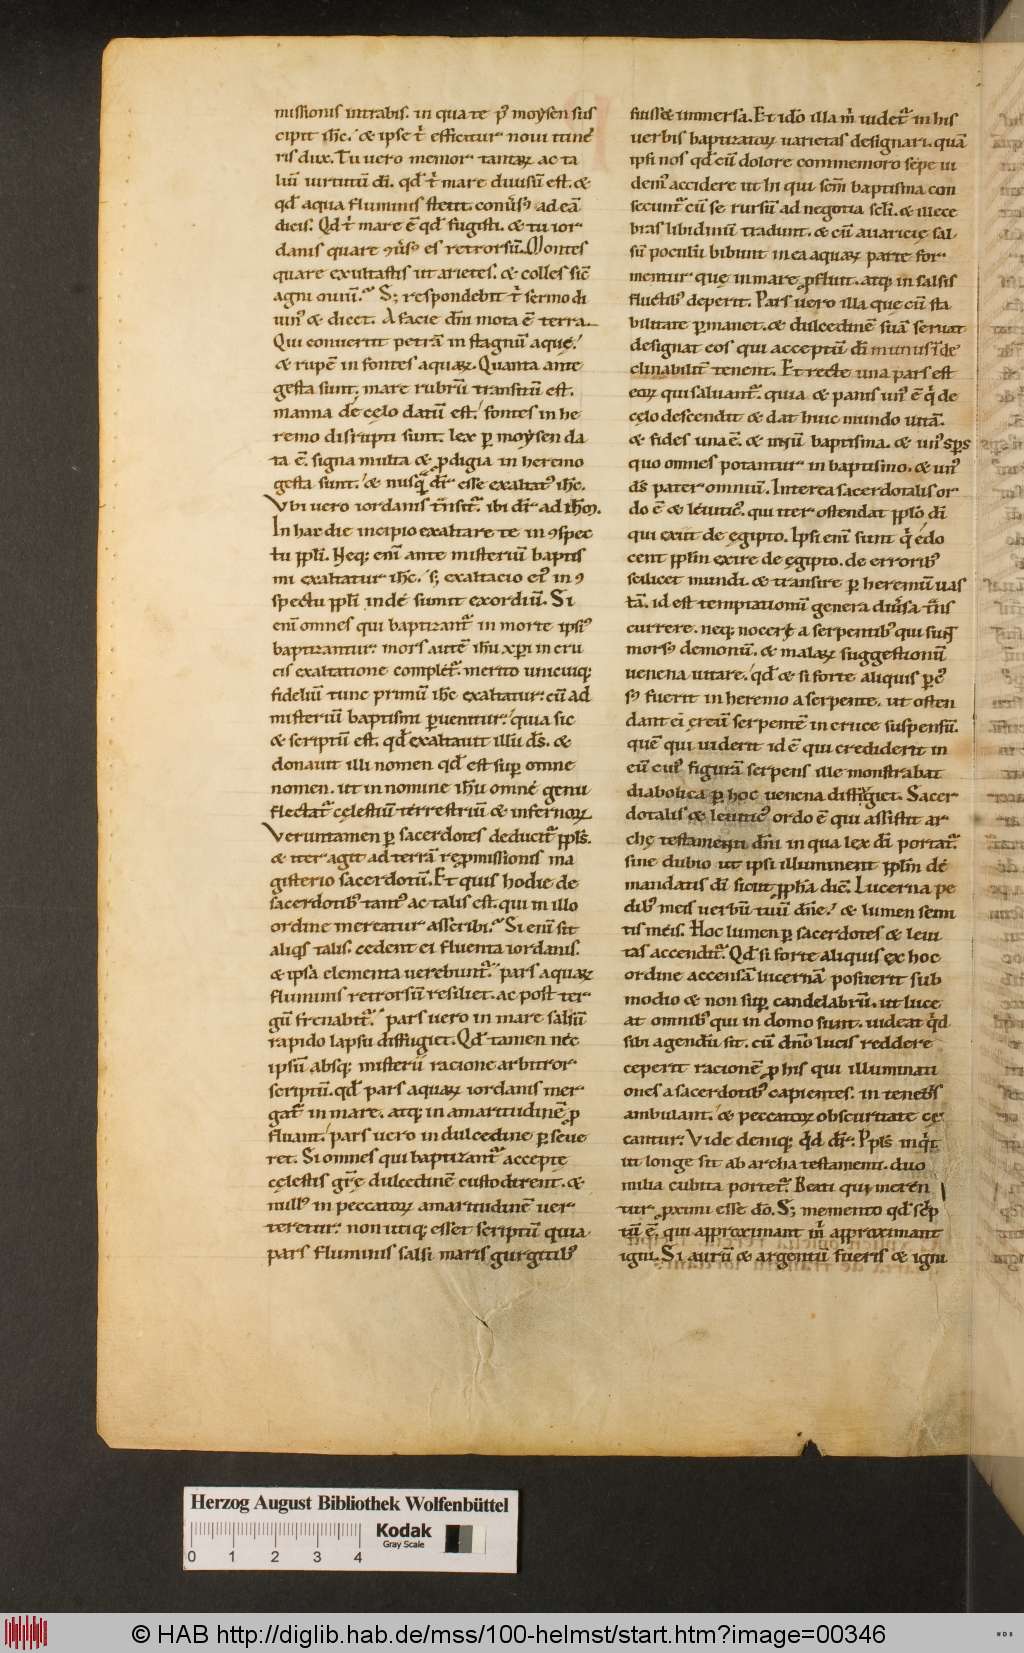 missionis intrabis. in qua te p̄ moysen sus
cipit ih̄c. & ipse t̄ efficitur noui itine
ris dux. Tu uero memor tantaꝝ ac ta
liū uirtutū dī. qd̄ t̄ mare diuisū est. &
qd̄ aqua fluminis stetit. conūsꝰ ad eā
dicis. Qd̄ t̄ mare ē qd̄ fugisti. & tu ior
danis quare ꝯūsꝰ es retrorsū. Montes
quare exultastis ut arietes. & colles sic̄
agni ouiū. S; respondebit t̄ sermo di
uinꝰ & dicet. A facie dn̄i mota ē terra.
Qui conuertit petrā in stagnū aquę.
& rupē in fontes aquaꝝ. Quanta ante
gesta sunt. mare rubrū transitū est.
manna de cęlo datū est. fontes in he
remo disrupti sunt. lex ꝑ moysen da
ta ē. signa multa & ꝓdigia in heremo
gesta sunt. & nusq̄ dr̄ esse exaltatꝰ ih̄c.
Vbi uero iordanis trāsit̄. ibi dr̄ ad ih̄m.
In hac die incipio exaltare te in ꝯspec
tu ppl̄i. Neq; eni ante misteriū baptis
mi exaltatur ih̄c. s; exaltacio eiꝰ in ꝯ
spectu ppl̄i inde sumit exordiū. Si
eni omnes qui baptizant̄ in morte ipsiꝰ
baptizantur. mors autē ih̄u xp̄i in cru
cis exaltatione complet̄. merito unicuiq;
fideliū tunc primū ih̄c exaltatur. cū ad
misteriū baptismi ꝑuenitur. quia sic
& scriptū est. qd̄ exaltauit illū ds̄. &
donauit illi nomen qd̄ est suꝑ omne
nomen. ut in nomine ih̄u omne genu
flectat̄ cęlestiū terrestriū & infernoꝝ
Veruntamen ꝑ sacerdotes deducit̄ ppl̄s.
& iter agit ad terrā repromissionis ma
gisterio sacerdotū. Et quis hodie de
sacerdotibꝰ tantꝰ ac talis est. qui in illo
ordine mereatur asscribi. Si eni sit
aliqs talis. cedent ei fluenta iordanis.
& ipsa elementa uerebunt̄. pars aquaꝝ
fluminis retrorsū resiliet. ac post ter
gū frenabit̄. pars uero in mare salsū
rapido lapsu diffugiet. Qd̄ tamen nec
ipsū absq; misterii racione arbitror
scriptū. qd̄ pars aquaꝝ iordanis mer
gat̄ in mare. atq; in amaritudinē ꝓ
fluant. pars uero in dulcedine ꝑseue
ret. Si omnes qui baptizant̄ accepte
cęlestis gr̄ę dulcedinē custodirent. &
nullꝰ in peccatoꝝ amaritudinē uer
teretur. non utiq; esset scriptū quia
pars fluminis salsi maris gurgitibꝰ
fuisset immersa. Et ido illa m̄ uidet̄ in his
uerbis baptizatoꝝ uarietas designari. quā
ipsi nos qd̄ cū dolore commemoro sepe ui
demꝰ accidere ut hi qui sem̄ baptisma con
secunt̄ cū se rursū ad negotia scl̄i. & illece
bras libidinū tradunt. & cū auaricię sal
sū poculū bibunt in ea aquaꝝ parte for
mentur quę in mare ꝓfluit. atq; in salsis
fluctibꝰ deperit. Pars uero illa que cū sta
bilitate ꝑmanet. & dulcedinē suā seruat
designat eos qui acceptū dī munus ide
clinabilit̄ tenent. Et recte una pars est
eoꝝ qui saluant̄. quia & panis unꝰ ē q̄ de
cęlo descendit & dat huic mundo uitā.
& fides una ē. & unū baptisma. & unꝰ sp̄s
quo omnes potantur in baptismo. & unꝰ
ds̄ pater omniū. Interea sacerdotalis or
do ē & leuiticꝰ. qui iter ostendat ppl̄o dī
qui exiit de ęgipto. Ipsi eni sunt q̄ edo
cent ppl̄m exire de ęgipto. de erroribꝰ
scilicet mundi. & transire ꝑ heremū uas
tā. id est temptationū genera diūsa trās
currere. neq; noceri a serpentibꝰ qui sunt
morsꝰ demonū. & malaꝝ suggestionū
uenena uitare. qd̄ & si forte aliquis ꝑcꝰ
sꝰ fuerit in heremo a serpente. ut osten
dant ei ęreū serpentē in cruce suspensū.
quē qui uiderit id ē qui crediderit in
eū cuiꝰ figurā serpens ille monstrabat
diabolica ꝑ hoc uenena diffugiet. Sacer
dotalis & leuiticꝰ ordo ē qui assistit ar
chę testamenti dn̄i in qua lex dī portat̄.
sine dubio ut ipsi illuminent ppl̄m de
mandatis dī sicut ꝓph̄a dic̄. Lucerna pe
dibꝰ meis uerbū tuū dn̄e. & lumen semi
tis meis. Hoc lumen ꝑ sacerdotes & leui
tas accendit̄. Qd̄ si forte aliquis ex hoc
ordine accensā lucernā posuerit sub
modio & non suꝑ candelabrū. ut luce
at omnibꝰ qui in domo sunt. uideat q̄d
sibi agendū sit. cū dn̄o lucis reddere
ceperit racionē ꝓ his qui illuminati
ones a sacerdotibꝰ capientes. in tenebris
ambulant. & peccatoꝝ obscuritate cę
cantur. Vide deniq; q̄d dr̄. Ppl̄s inq̄t
ut longe sit ab archa testamenti. duo
milia cubita portet̄. Beati qui meren
tur ꝓximi esse dō. S; memento qd̄ sc̄p
tū ē. qui approximant m̄ approximant
igni. Si aurū & argentū fueris & igni
Herzog August Bibliothek Wolfenbüttel
Kodak
Gray Scale
0 1 2 3 4
© HAB http://diglib.hab.de/mss/100-helmst/start.htm?image=00346